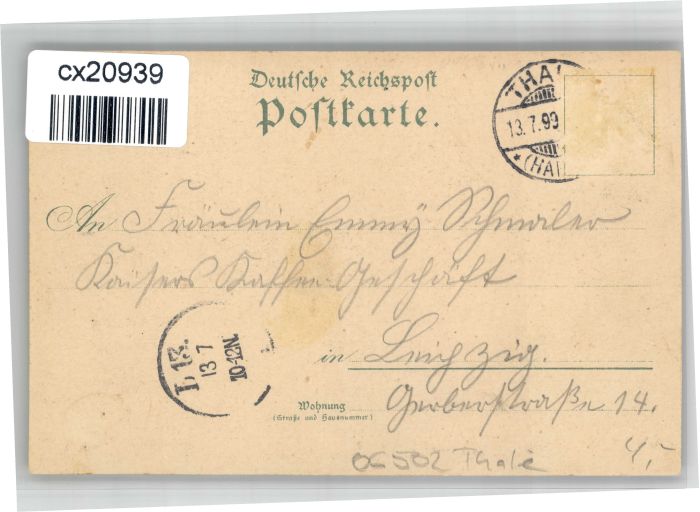 cx20939
Deutsche Reichspost
Postkarte.
THAL
13.7.99
* (HAR
An Fräulein Emmy Schmaler
Kaisers Kaffee-Geschäft
L 13.
13 7
10-12N.
in Leipzig.
Wohnung
(Straße und Hausnummer)
Gerberstraße 14.
06502 Thale
4,-